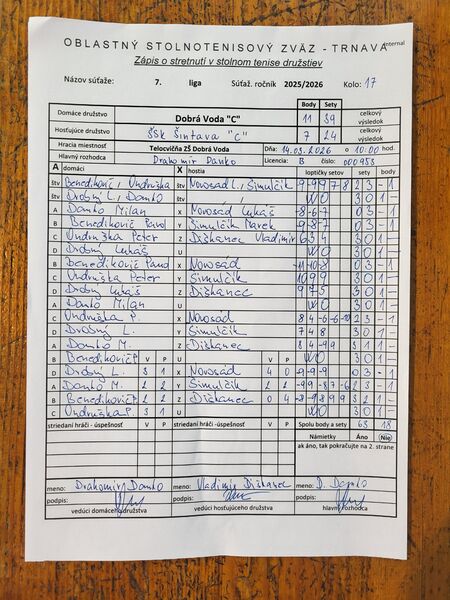 OBLASTNÝ STOLNOTENISOVÝ ZVÄZ - TRNAVA
Internal
Zápis o stretnutí v stolnom tenise družstiev
Názov súťaže: 7. liga Súťaž. ročník 2025/2026 Kolo: 17
Body Sety
Domáce družstvo Dobrá Voda "C" 11 39 celkový výsledok
Hosťujúce družstvo ŠŠK Šintava "C" 7 24 celkový výsledok
Hracia miestnosť Telocvičňa ZŠ Dobrá Voda Dňa: 14.03.2026 o 10:00 hod.
Hlavný rozhodca Drahomír Danko Licencia: B číslo: 000953
A domáci X hostia loptičky setov sety body
štv Benedikovič / Undruška štv Novosad L, Šimulčik -9 -9 9 7 8 2 3 - 1
štv Drobný L, Danko štv / WO 3 0 1 -
A Danko Milan X Novosad Lukáš -8 -6 -7 0 3 - 1
B Benedikovič Pavol Y Šimulčik Marek -9 -8 -7 0 3 - 1
C Undruška Peter Z Diškanec Vladimír 6 3 4 3 0 1 -
D Drobný Lukáš U WO 3 0 1 -
B Benedikovič Pavol X Novosad -11 -10 8 0 3 - 1
C Undruška Peter Y Šimulčik 10 9 9 3 0 1 -
D Drobný Lukáš Z Diškanec 9 7 5 3 0 1 -
A Danko Milan U WO 3 0 1 -
C Undruška P. X Novosad 8 4 -6 -6 -10 2 3 - 1
D Drobný L. Y Šimulčik 7 4 8 3 0 1 -
A Danko M. Z Diškanec 8 4 -9 9 3 1 1 -
B Benedikovič P V P U V P WO 3 0 1 -
D Drobný L. 3 1 X Novosad 4 0 -9 -9 -9 0 3 - 1
A Danko M. 2 2 Y Šimulčik 2 2 -9 9 -8 7 -6 2 3 - 1
B Benedikovič P 2 2 Z Diškanec 0 4 -8 -9 8 9 9 3 2 1 -
C Undruška P. 3 1 U WO 3 0 1 -
striedaní hráči - úspešnosť V P striedaní hráči - úspešnosť V P Spolu body a sety 63 18
Námietky Áno Nie
ak áno, tak pokračujte na 2. strane
meno: Drahomír Danko meno: Vladimír Diškanec meno: D. Danko
podpis: podpis: podpis:
vedúci domáceho družstva vedúci hosťujúceho družstva hlavný rozhodca